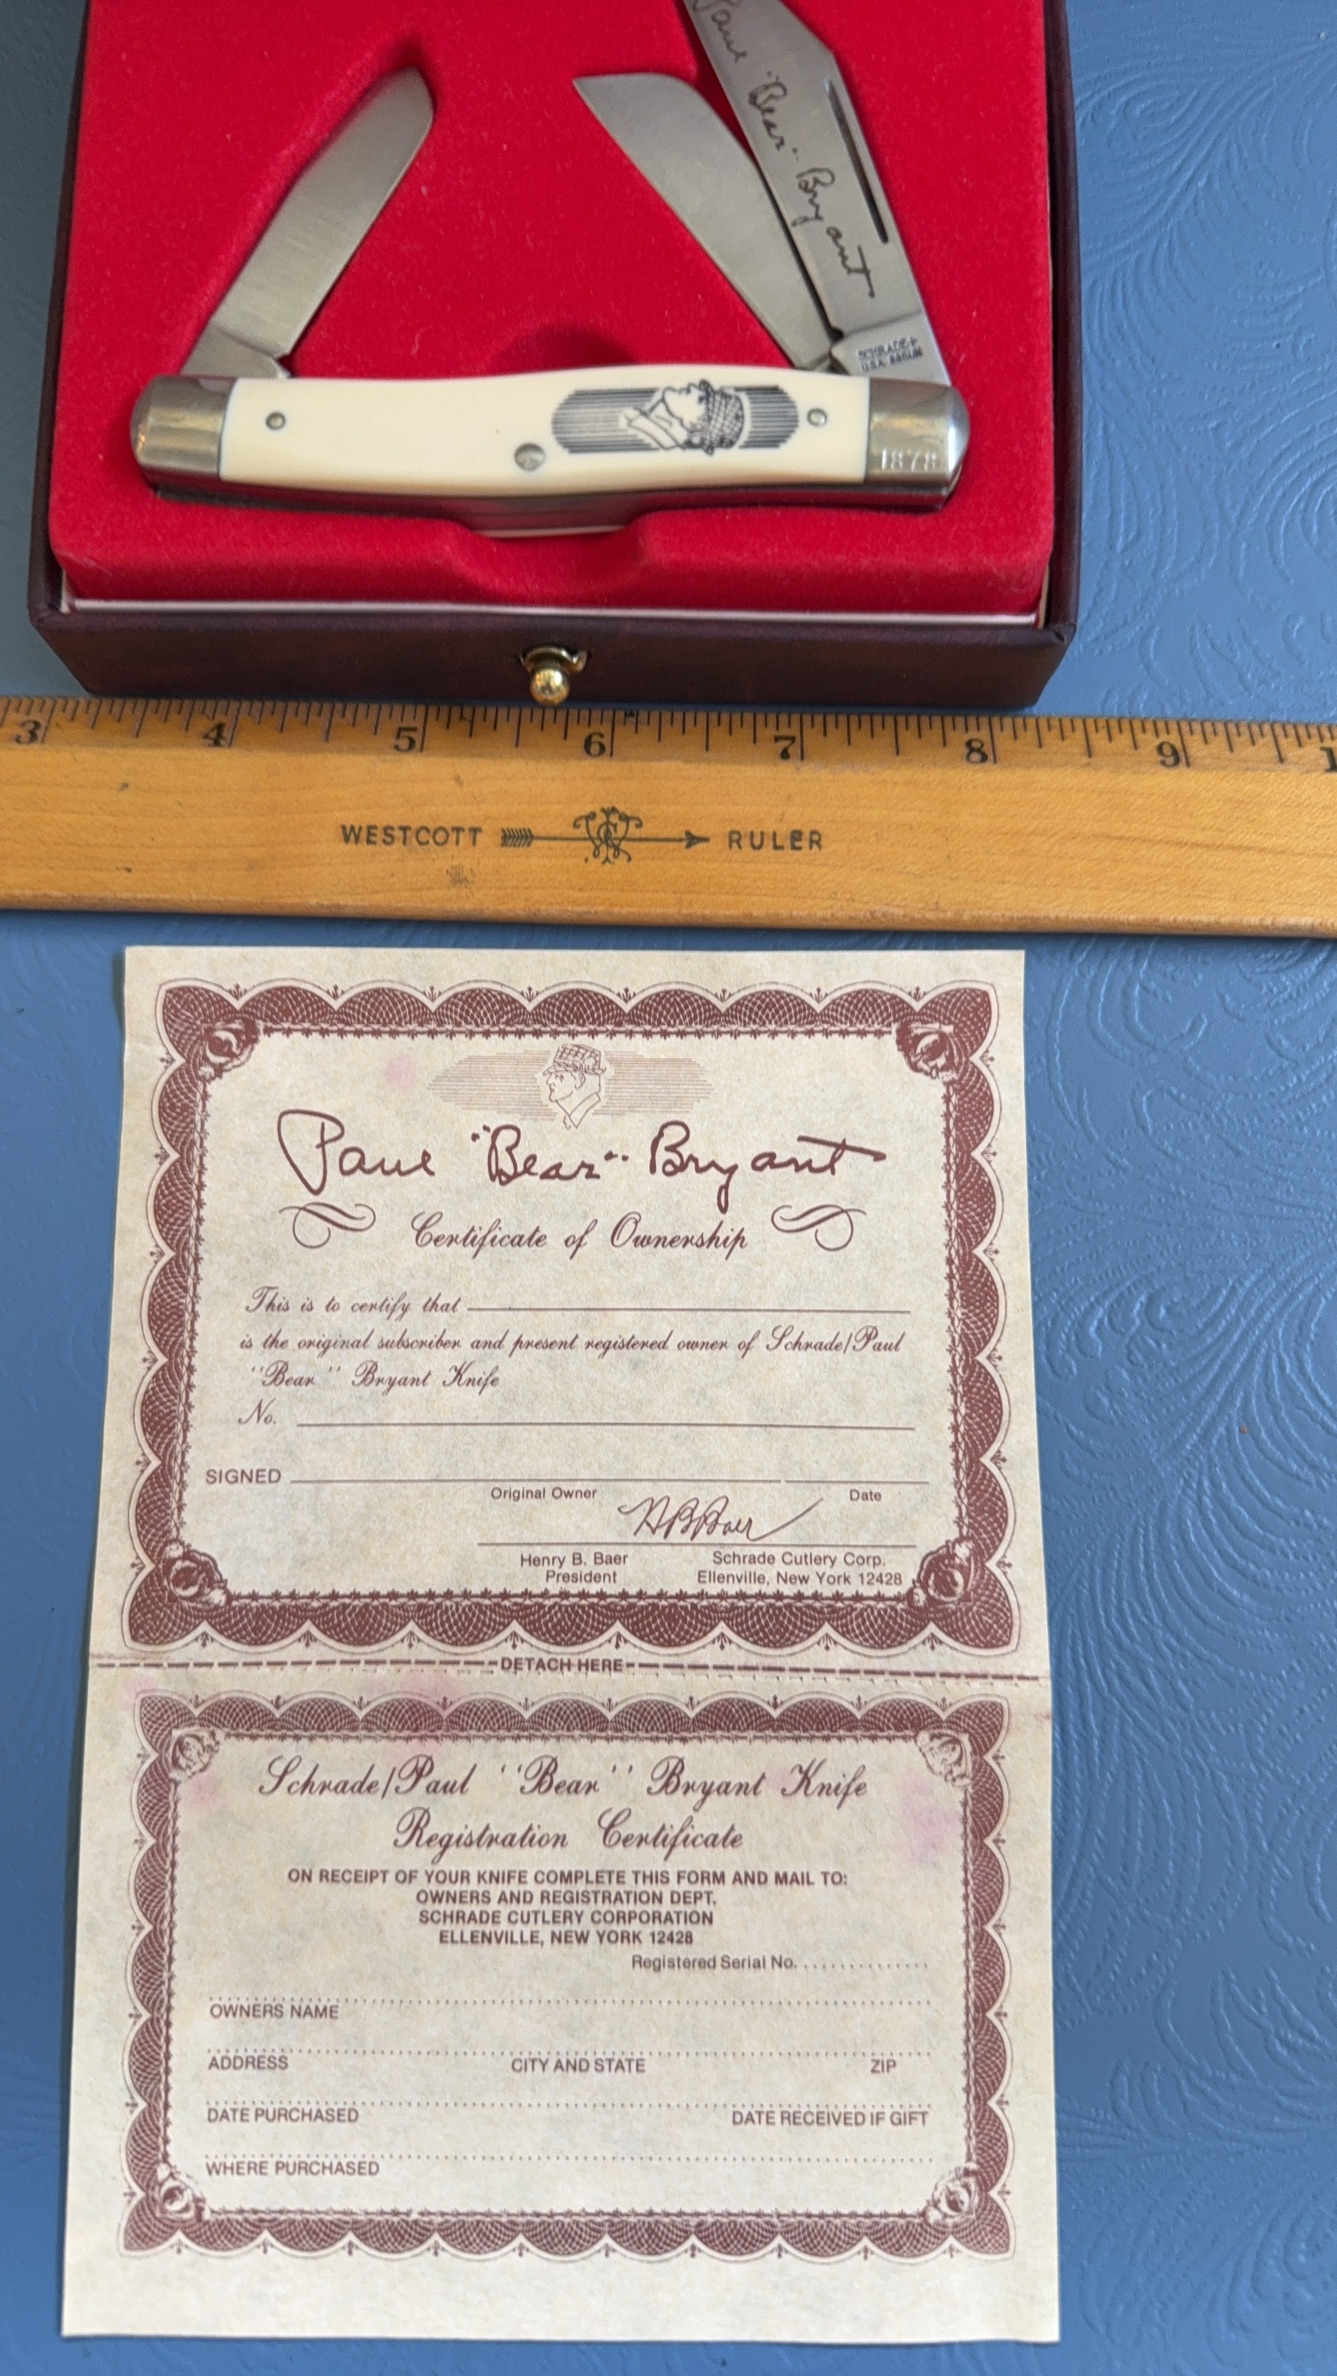 Paul "Bear" Bryant
SCHRADE+
U.S.A.
1878
3 4 5 6 7 8 9 1
WESTCOTT RULER
Paul "Bear" Bryant
Certificate of Ownership
This is to certify that
is the original subscriber and present registered owner of Schrade/Paul
"Bear" Bryant Knife
No.
SIGNED
Original Owner Date
HBBaer
Henry B. Baer Schrade Cutlery Corp.
President Ellenville, New York 12428
DETACH HERE
Schrade/Paul "Bear" Bryant Knife
Registration Certificate
ON RECEIPT OF YOUR KNIFE COMPLETE THIS FORM AND MAIL TO:
OWNERS AND REGISTRATION DEPT.
SCHRADE CUTLERY CORPORATION
ELLENVILLE, NEW YORK 12428
Registered Serial No.
OWNERS NAME
ADDRESS CITY AND STATE ZIP
DATE PURCHASED DATE RECEIVED IF GIFT
WHERE PURCHASED